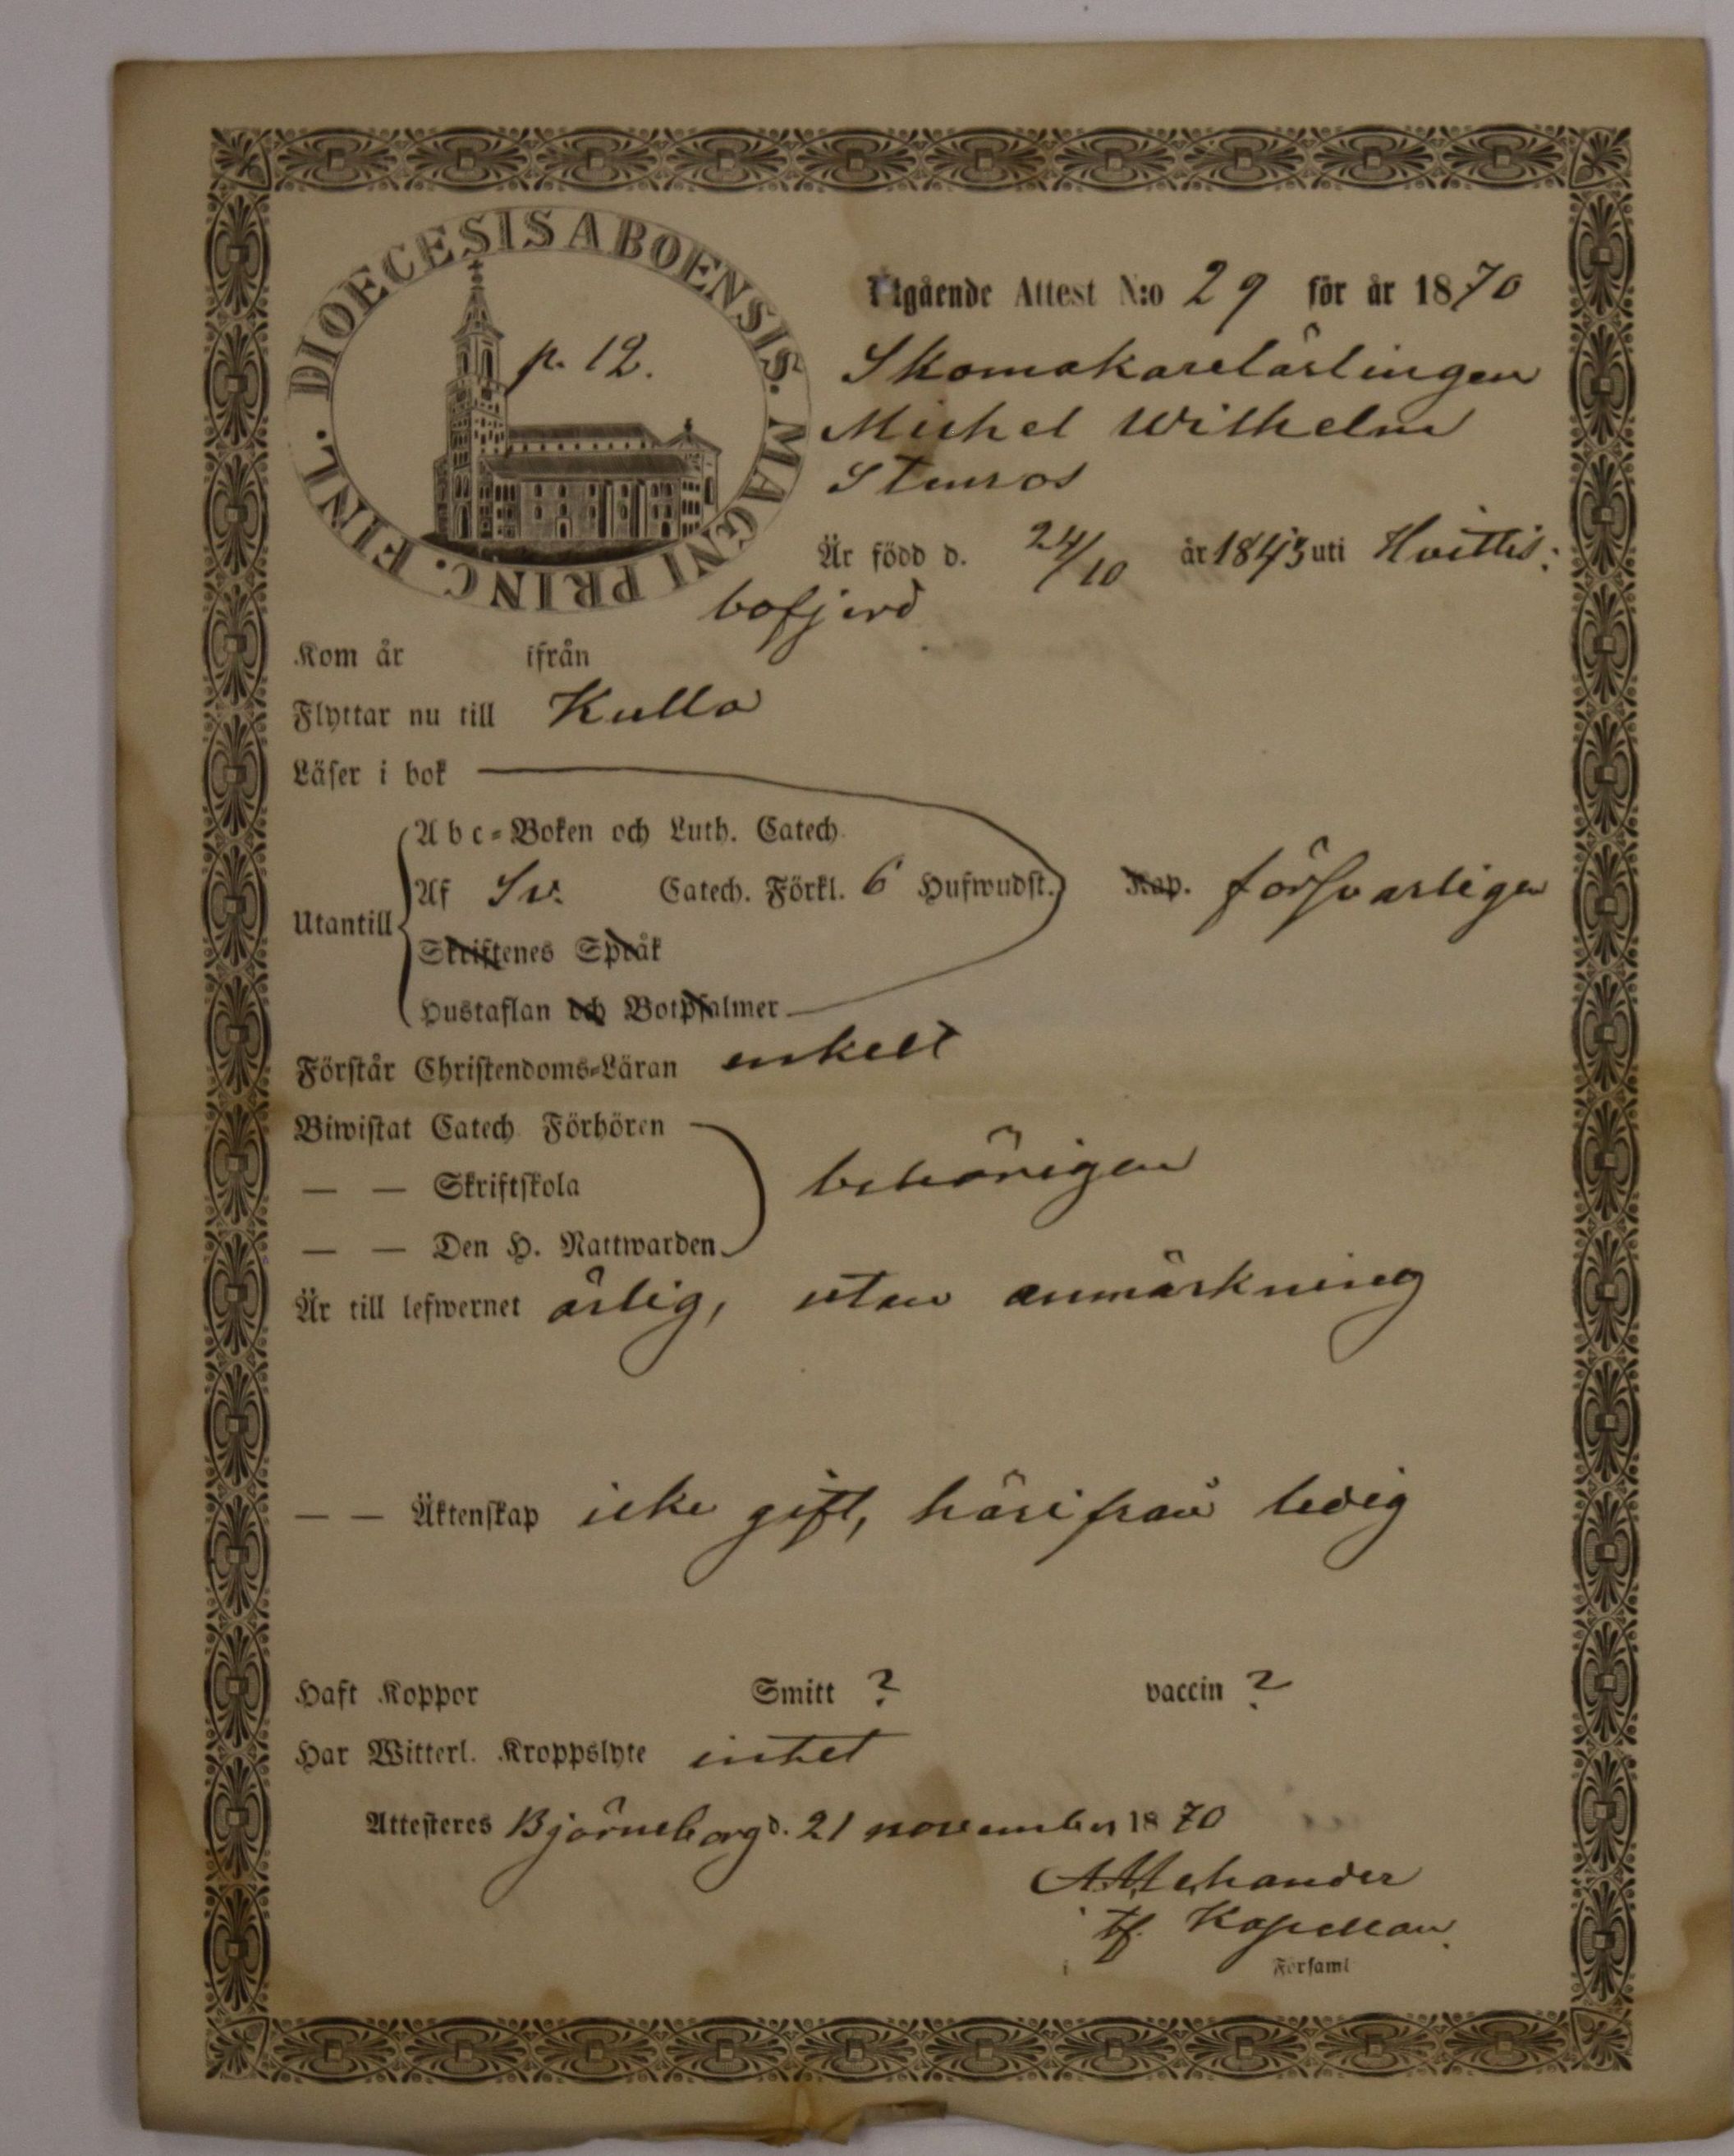 DIOECESIS ABOENSIS. MAGNI PRINC. FINL.
p. 12.
Utgående Attest N:o 29 för år 1870
Skomakarelärlingen
Michel Wilhelm
Stenros
Är född d. 24/10 år 1843 uti Hvittis:
bofjerd
Kom år ifrån
Flyttar nu till Kulla
Läser i bok
Abc-Boken och Luth. Catech.
Utantill Af Sv. Catech. Förkl. 6 Hufwudst. Kap. försvarligen
Skriftenes Språk
Hustaflan och Botpsalmer
Förstår Christendoms-Läran enkelt
Biwistat Catech. Förhören
— — Skriftskola behörigen
— — Den H. Nattwarden
Är till lefwernet ärlig, utan anmärkning
— — Äktenskap icke gift, härifrån ledig
Haft Koppor Smitt ? vaccin ?
Har Witterl. Kroppslyte intet
Attesteres Björneborg d. 21 november 1870
tf. Kapellan.
i Församl